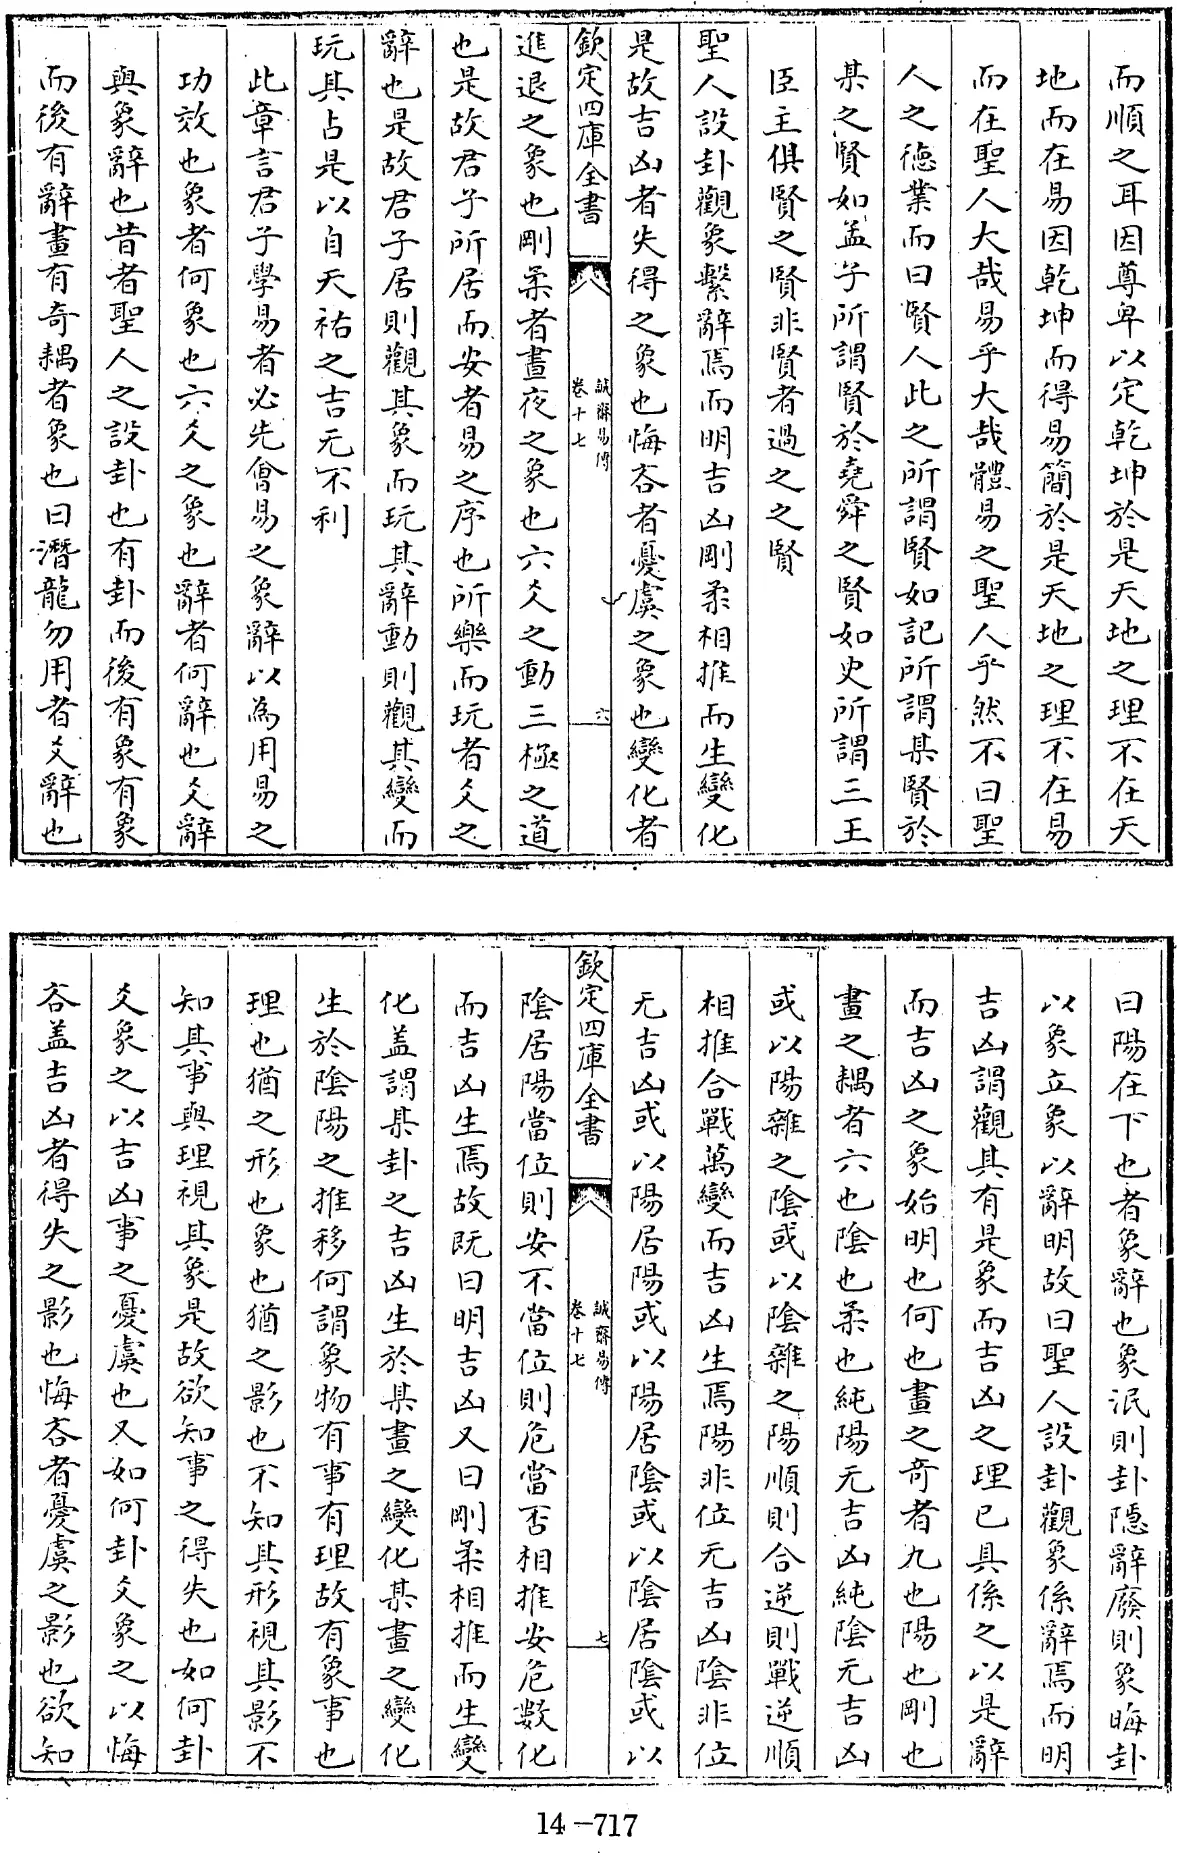 而順之耳因尊卑以定乾坤於是天地之理不在天
地而在易因乾坤而得易簡於是天地之理不在易
而在聖人大哉易乎大哉體易之聖人乎然不曰聖
人之德業而曰賢人此之所謂賢如記所謂某賢於
某之賢如孟子所謂賢於堯舜之賢如史所謂三王
臣主俱賢之賢非賢者過之之賢
聖人設卦觀象繫辭焉而明吉凶剛柔相推而生變化
是故吉凶者失得之象也悔吝者憂虞之象也變化者
欽定四庫全書
誠齋易傳
卷十七
六
進退之象也剛柔者晝夜之象也六爻之動三極之道
也是故君子所居而安者易之序也所樂而玩者爻之
辭也是故君子居則觀其象而玩其辭動則觀其變而
玩其占是以自天祐之吉无不利
此章言君子學易者必先會易之象辭以為用易之
功效也象者何象也六爻之象也辭者何辭也爻辭
與象辭也昔者聖人之設卦也有卦而後有象有象
而後有辭畫有奇耦者象也曰潛龍勿用者爻辭也
曰陽在下也者象辭也象泯則卦隱辭廢則象晦卦
以象立象以辭明故曰聖人設卦觀象係辭焉而明
吉凶謂觀其有是象而吉凶之理已具係之以是辭
而吉凶之象始明也何也畫之奇者九也陽也剛也
畫之耦者六也陰也柔也純陽无吉凶純陰无吉凶
或以陽雜之陰或以陰雜之陽順則合逆則戰逆順
相推合戰萬變而吉凶生焉陽非位无吉凶陰非位
无吉凶或以陽居陽或以陽居陰或以陰居陰或以
欽定四庫全書
誠齋易傳
卷十七
七
陰居陽當位則安不當位則危當否相推安危數化
而吉凶生焉故既曰明吉凶又曰剛柔相推而生變
化盖謂某卦之吉凶生於某畫之變化某畫之變化
生於陰陽之推移何謂象物有事有理故有象事也
理也猶之形也象也猶之影也不知其形視其影不
知其事與理視其象是故欲知事之得失也如何卦
爻象之以吉凶事之憂虞也又如何卦爻象之以悔
吝盖吉凶者得失之影也悔吝者憂虞之影也欲知
14-717